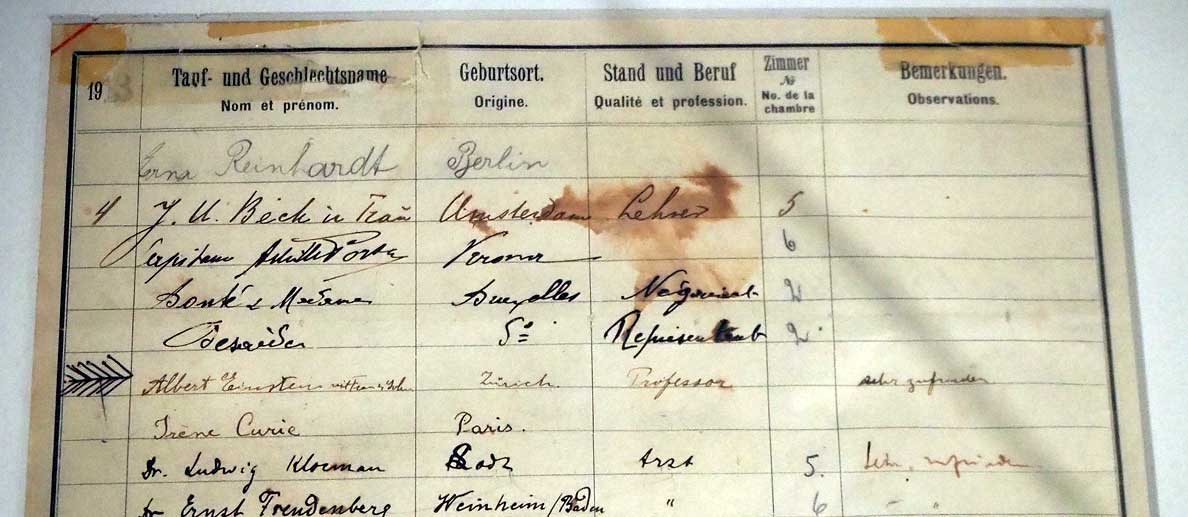 19 Tauf- und Geschlechtsname Geburtsort. Stand und Beruf Zimmer № Bemerkungen.
Nom et prénom. Origine. Qualité et profession. No. de la chambre Observations.
Erna Reinhardt Berlin
4 J. U. Beck u Frau Amsterdam Lehrer 5
Verona 6
& Madame Bruxelles Négociant 2
Representant 2
Albert Einstein mit Frau & Sohn Zürich. Professor sehr zufrieden
Irène Curie Paris.
Dr. Ludwig Kloeman Lodz Arzt 5. Sehr zufrieden
Dr Ernst Freudenberg Weinheim/Baden " 6 - "